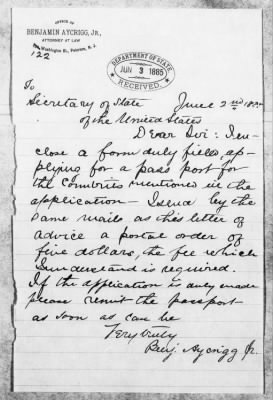 OFFICE OF
BENJAMIN AYCRIGG, JR.,
ATTORNEY AT LAW
Washington St., Paterson, N. J.
122
DEPARTMENT OF STATE
JUN 3 1885
RECEIVED
To
Secretary of State June 2nd 1885
of the United States
Dear Sir: I en-
close a form duly filed, ap-
plying for a pass port for
the countries mentioned in the
application - I send by the
same mail as this letter of
advice a postal order of
five dollars, the fee which
I understand is required.
If the application is duly made
please remit the passport
as soon as can be
Very truly
Benj. Aycrigg Jr.